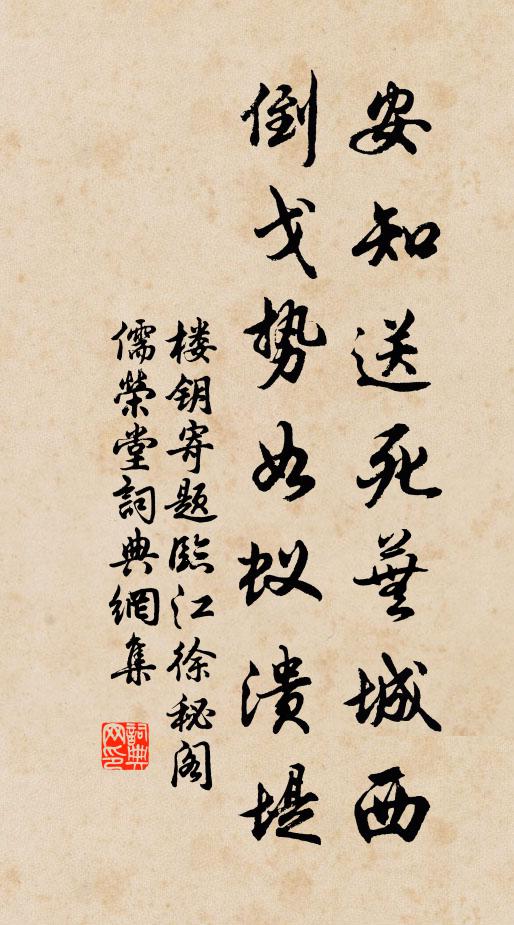 安知送死蕪城西
倒戈势如蚁溃堤
楼钥寄题臨江徐秘阁
儒榮堂詞典網集
詞典网印